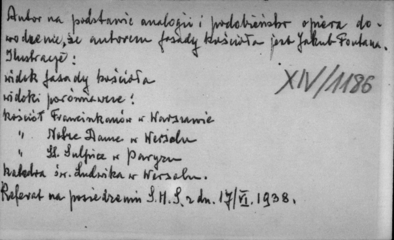 Autor na podstawie analogii i podobieństw opiera do-
wodzenie, że autorem fasady kościoła jest Jakub Fontana.
Ilustracje:
widok fasady kościoła
XIV/1186
widoki porównawcze:
kościół Franciszkanów w Warszawie
" Notre Dame w Wersalu
" St. Sulpice w Paryżu
katedra św. Ludwika w Wersalu.
Referat na posiedzeniu S.H.S. z dn. 17/VI. 1938.